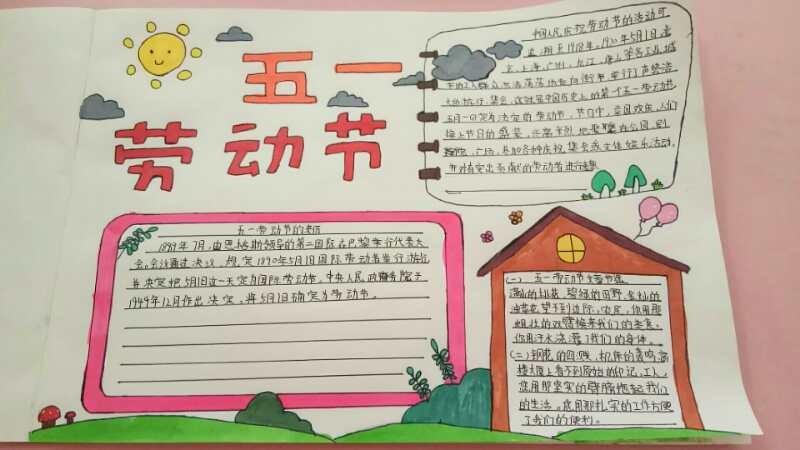 五一
劳动节
中国人民庆祝劳动节的活动可
追溯至1918年。1920年5月1日,北
京、上海、广州、九江、唐山等各工业城
市的工人群众浩浩荡荡地走向街市、举行了声势浩
大的游行、集会。这就是中国历史上的第一个五一劳动节。
五月一日定为法定的劳动节,
节日中,全国欢乐,人们
换上节日的盛装,兴高采烈地聚集在公园、剧
院、广场,参加各种庆祝集会或文体娱乐活动,
并对有突出贡献的劳动者进行
五一劳动节的来历
1889年7月,由恩格斯领导的第二国际在巴黎举行代表大
会。会议通过决议,规定1890年5月1日国际劳动者举行游行,
并决定把5月1日这一天定为国际劳动节。中央人民政府政务院于
1949年12月作出决定,将5月1日确定为劳动节。
(一) 五一劳动节
的桃花,碧绿的田野,金灿的
油菜花望不到边际,农民,你用那
粗壮的双臂换来我们的
你用汗水浇灌了我们的身体。
(二)钢花的四溅,机床的轰鸣,高
楼大厦上看不到原始的印记,工人,
您用那坚实的臂膀抱起我们
的生活。您用那扎实的工作方便
了我们的便利。